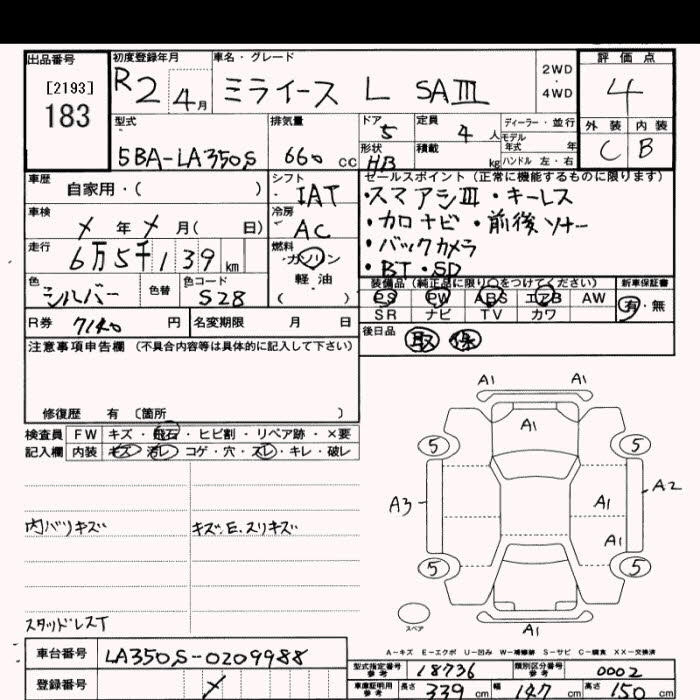 出品番号 初度登録年月 車名・グレード 評価点
[2193]
183
R2 4月 ミライース L SAⅢ 2WD 4WD 4
型式 排気量 ドア 定員 ディーラー・並行 外装 内装
5BA-LA350S 660 cc 5 4人 モデル年式 年 C B
形状 積載 HB kg ハンドル 左・右
車歴 自家用・( ) シフト IAT セールスポイント(正常に機能するものに限ります)
・スマアシⅢ・キーレス
車検 メ年メ月( 日) 冷房 AC ・カロナビ・前後ソナー
走行 6万5千139km 燃料 ガソリン ・バックカメラ
軽油 ・BT・SD
色 シルバー 色替 色コード S28 ( ) 装備品(純正品に限り○をつけてください) 新車保証書
PS PW ABS エアB AW 有・無
SR ナビ TV カワ
R券 7140円 名変期限 月 日 後日品 取 保
注意事項申告欄(不具合内容等は具体的に記入して下さい)
修復歴 有 〔箇所 〕
検査員 FW キズ・飛石・ヒビ割・リペア跡・×要
記入欄 内装 キズ・汚レ・コゲ・穴・スレ・キレ・破レ
A1 A1
A1
5 5
A3 A1 A2
A1
5 5
A1
内バリキズ キズ.E.スリキズ
スペア
スタッドレスT
A-キズ E-エクボ U-凹み W-補修跡 S-サビ C-腐食 XX-交換済
車台番号 LA350S-0209988 型式指定番号 参考 18736 類別区分番号 参考 0002
登録番号 メ 車庫証明用 参考 長さ 339cm 幅 147cm 高さ 150cm